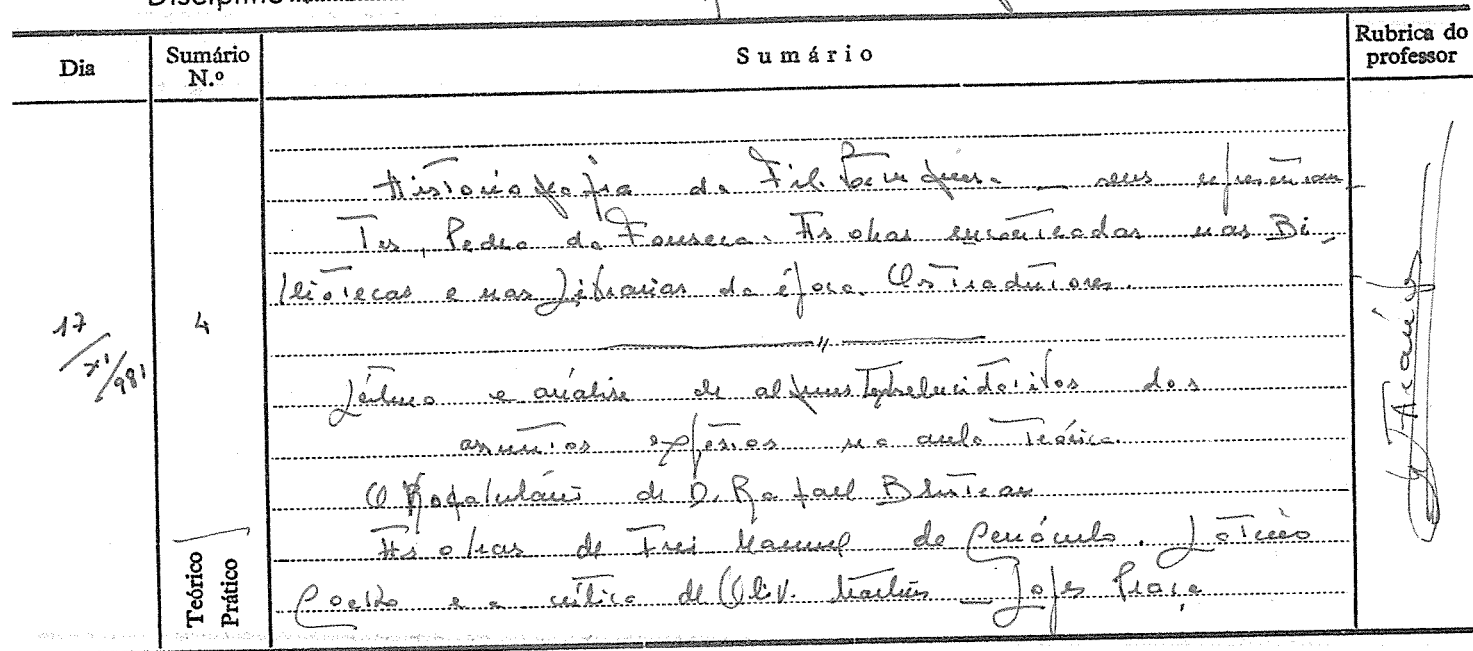 Dia
Sumário N.º
Sumário
Rubrica do professor
Historiografia da Fil. Portuguesa — seus representan
tes, Pedro da Fonseca. As obras encontradas nas Bi-
bliotecas e nas Librarias da época. Os tradutores.
17/XI/981
4
Leitura e análise de alguns textos elucidativos dos
assuntos expostos na aula Teórica.
O Vocabulário de D. Rafael Bluteau
As obras de Frei Manuel do Cenáculo. Latino
Coelho e a crítica de Oliv. Martins — Lopes Praça
Teórico
Prático